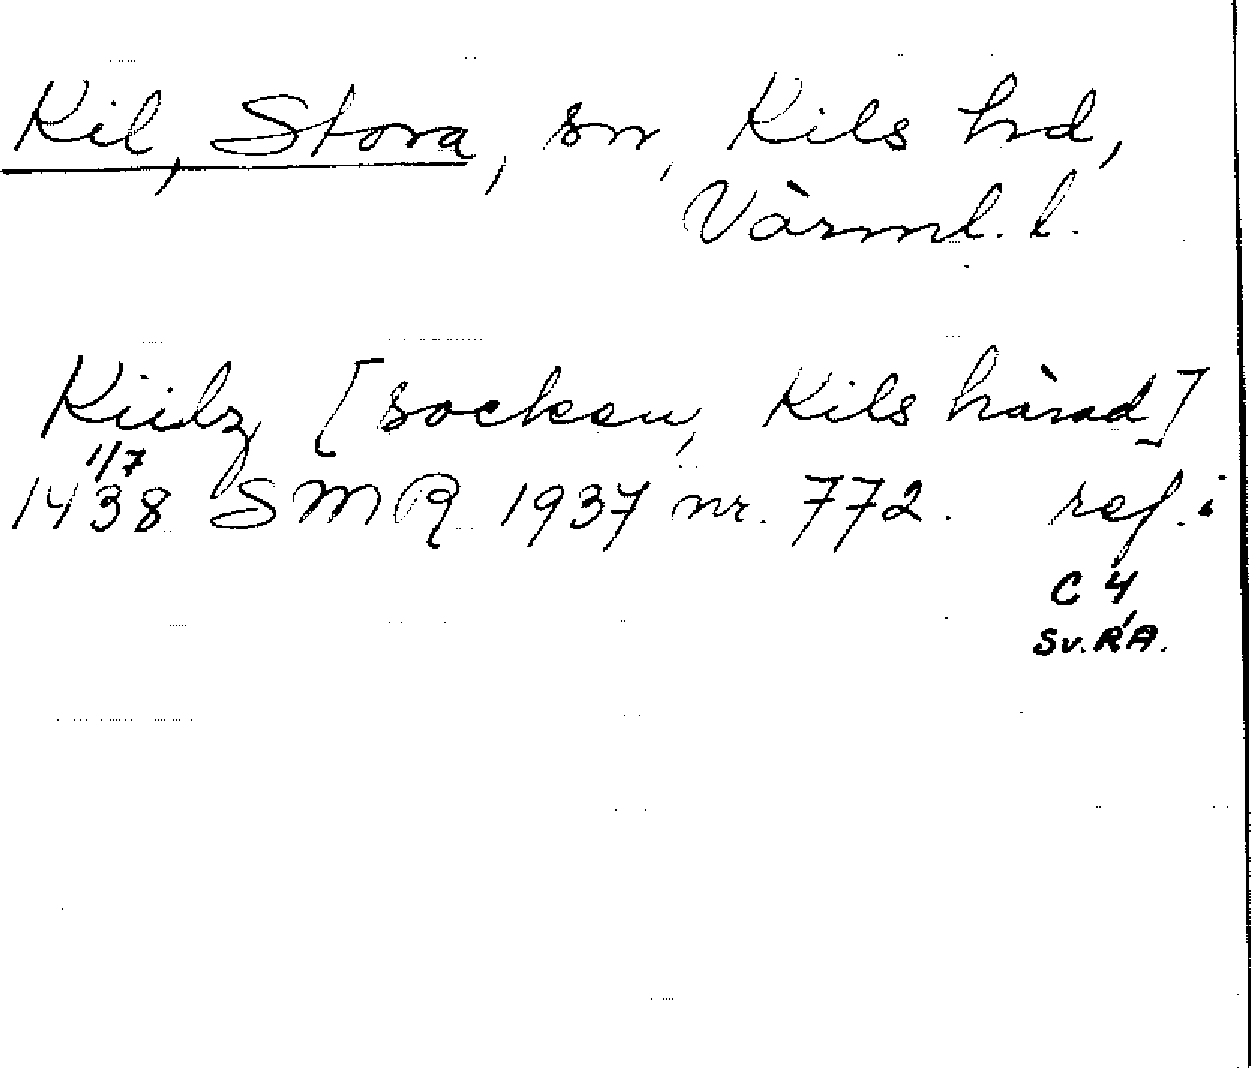 Kil, Stora, sn, Kils hd,
Värml. l.
Kiilz [socken, Kils härad]
1/7
1438 SMR 1937 nr. 772. ref. i
C 4,
Sv.RA.